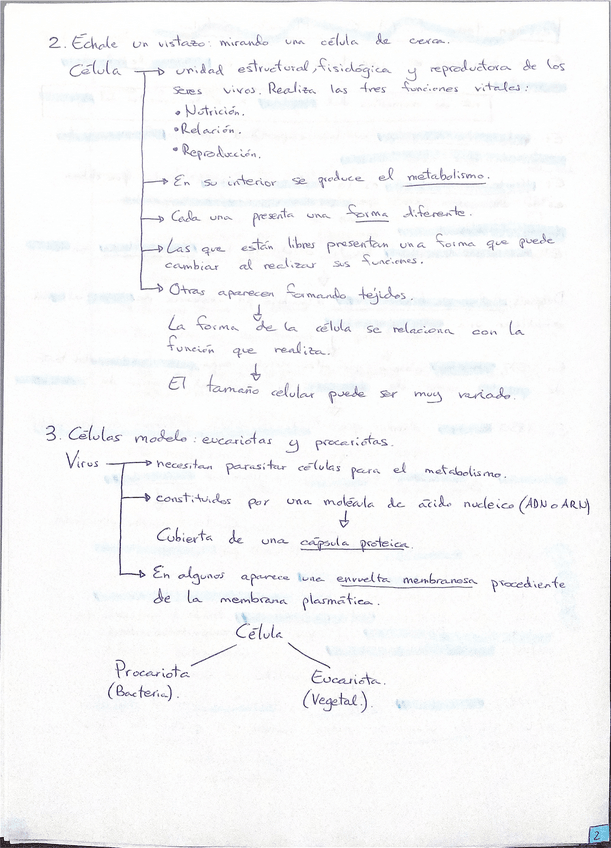 2. Échale un vistazo: mirando una célula de cerca.
Célula → unidad estructural, fisiológica y reproductora de los
seres vivos. Realiza las tres funciones vitales:
• Nutrición.
• Relación.
• Reproducción.
→ En su interior se produce el metabolismo.
→ Cada una presenta una forma diferente.
→ Las que están libres presentan una forma que puede
cambiar al realizar sus funciones.
→ Otras aparecen formando tejidos.
↓
La forma de la célula se relaciona con la
función que realiza.
↓
El tamaño celular puede ser muy variado.
3. Células modelo: eucariotas y procariotas.
Virus → necesitan parasitar células para el metabolismo.
→ constituidos por una molécula de ácido nucleico (ADN o ARN)
↓
Cubierta de una cápsula proteica.
→ En algunos aparece una envuelta membranosa procediente
de la membrana plasmática.
Célula
Procariota
(Bacteria).
Eucariota.
(Vegetal).
2